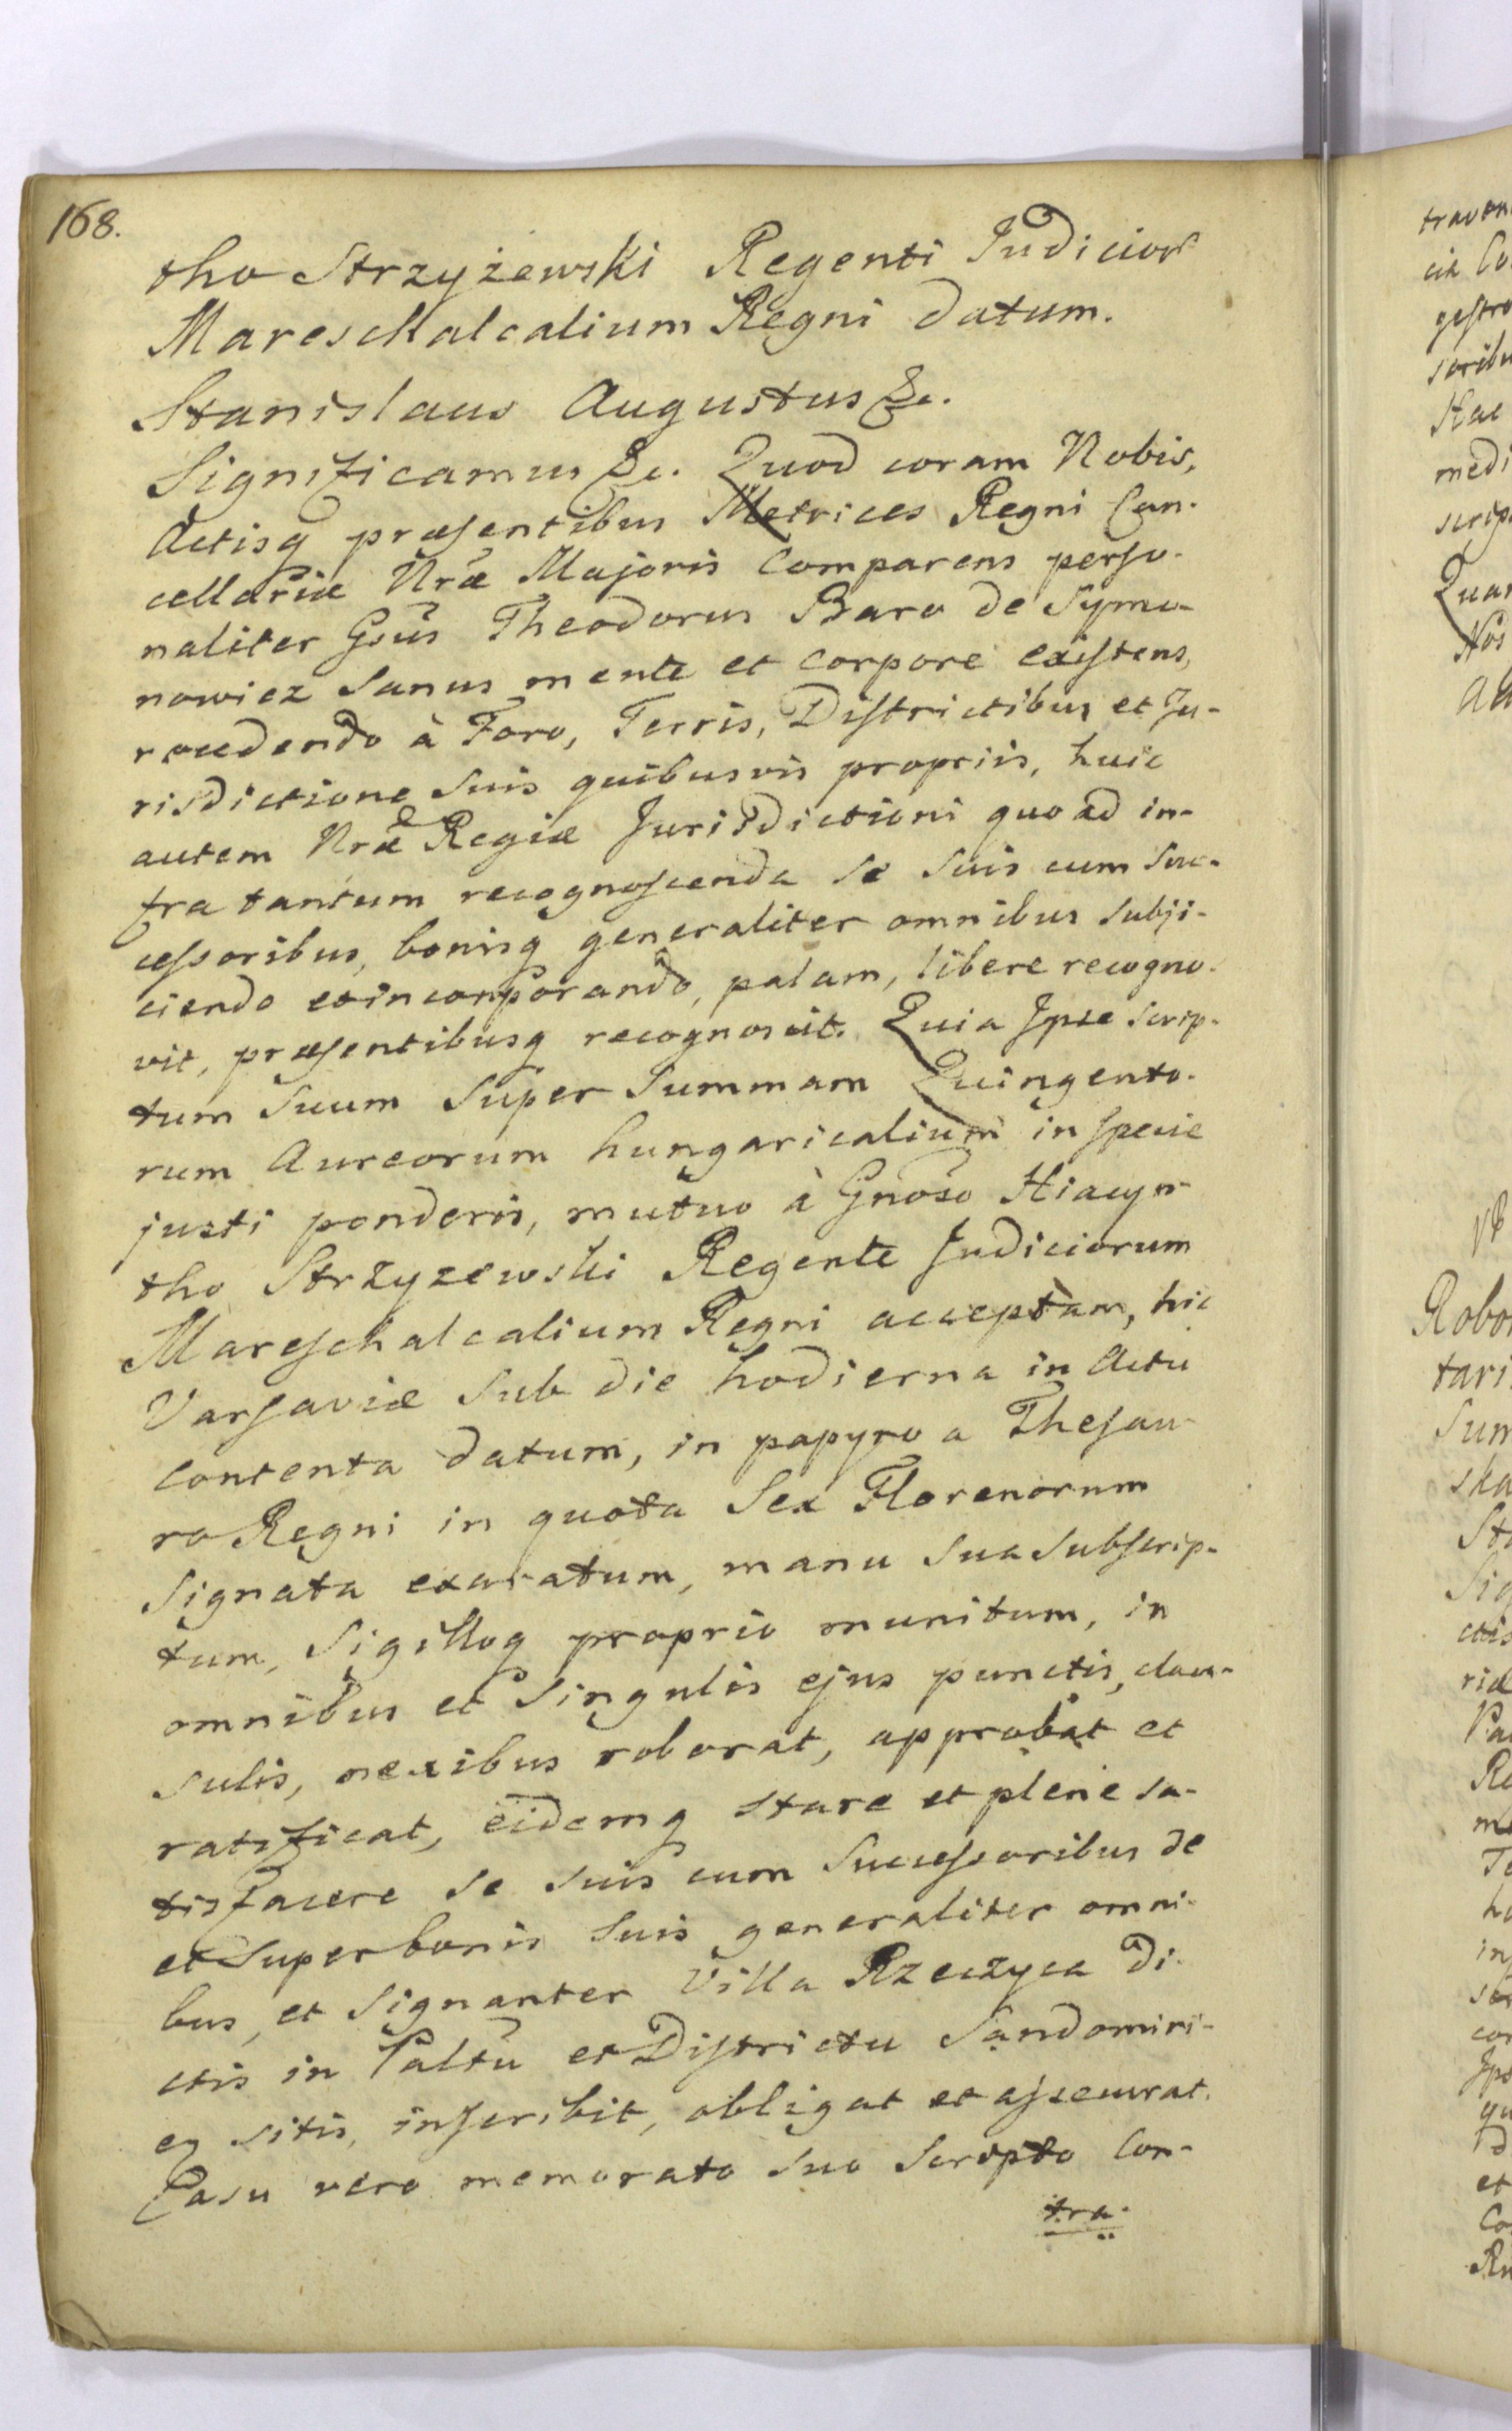 168.
tho Strzyżewski Regenti Judicior
Mareschalcalium Regni datum.
Stanislaus Augustus &c.
Significamus &c. Quod coram Nobis,
Actisq præsentibus Metrices Regni Can-
cellariæ Nræ Majoris Comparens perso-
naliter Gsus Theodorus Baro de Symo-
nowicz Sanus mente et Corpore existens,
recedendo à Foro, Terris, Districtibus et Ju-
risdictione Suis quibusvis propriis, huic
autem Nræ Regiæ Jurisdictioni quo ad in-
fra tantum recognoscenda se Suis cum Suc-
cessoribus, bonisq generaliter omnibus Subji-
ciendo et incorporando, palam, libere recogno-
vit, præsentibusq recognoscit. Quia Ipse Scrip-
tum Suum Super Summam Quingento-
rum Aureorum hungaricalium in Specie
justi ponderis, mutuo à Gnoso Hiacyn-
tho Strzyzewski Regente Judiciorum
Mareschalcalium Regni acceptam, hic
Varsaviæ Sub die hodierna in Actu
Contenta datum, in papyro a Thesau-
ro Regni in quota Sex Florenorum
Signata exaratum, manu Sua Subscrip-
tum, Sigilloq proprio munitum, in
omnibus et Singulis ejus punctis, clau-
sulis, nexibus roborat, approbat et
ratificat, eidemq Stare et plene Sa-
tisfacere se Suis cum Successoribus de
et Super bonis Suis generaliter omni-
bus, et Signanter Villa Rzeczyca di-
ctis in Paltu et Districtu Sandomiri-
en sitis, inscribit, obligat et assecurat.
Casu vero memorato Suo Scripto Con-
tra-